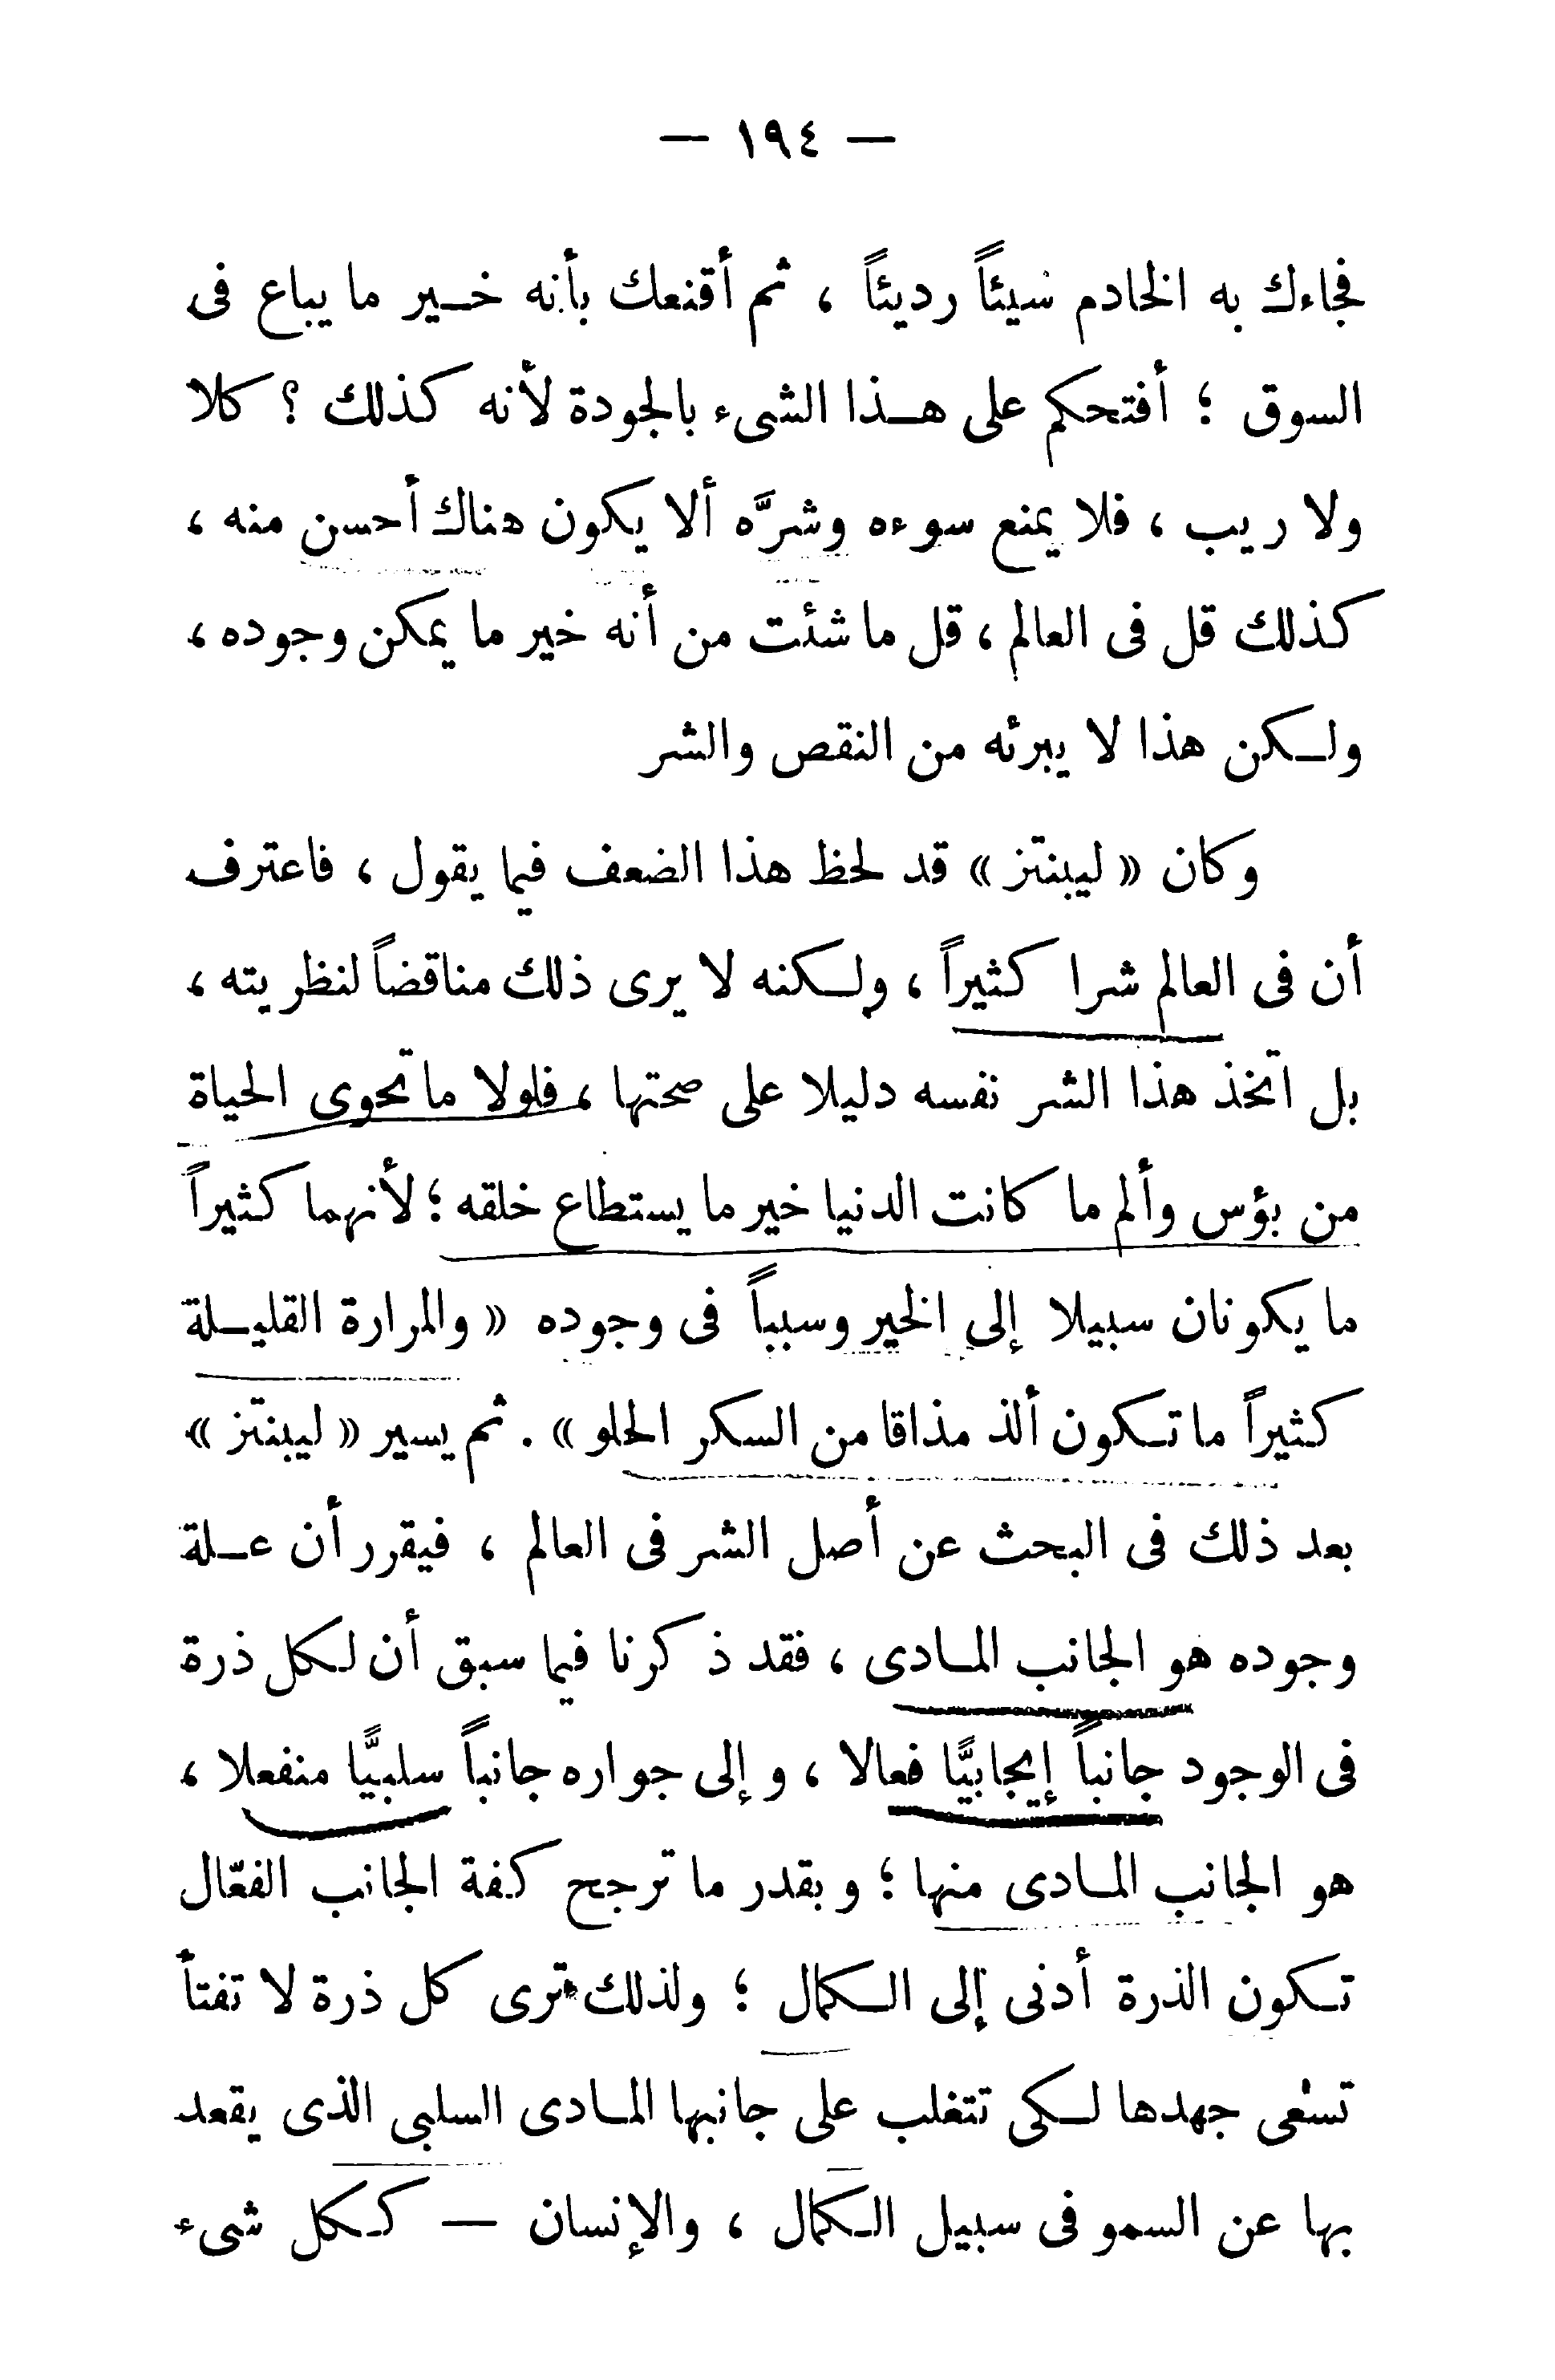 — ١٩٤ —
فجاءك به الخادم سيئاً رديئاً ، ثم أقنعك بأنه خير ما يباع فى
السوق ؛ أفتحكم على هذا الشىء بالجودة لأنه كذلك ؟ كلا
ولا ريب ، فلا يمنع سوءه وشرَّه ألا يكون هناك أحسن منه ،
كذلك قل فى العالم ، قل ما شئت من أنه خير ما يمكن وجوده ،
ولكن هذا لا يبرئه من النقص والشر
وكان « ليبنتز » قد لحظ هذا الضعف فيما يقول ، فاعترف
أن فى العالم شرا كثيراً ، ولكنه لا يرى ذلك مناقضاً لنظريته ،
بل اتخذ هذا الشر نفسه دليلا على صحتها ، فلولا ما تحوى الحياة
من بؤس وألم ما كانت الدنيا خير ما يستطاع خلقه ؛ لأنهما كثيراً
ما يكونان سبيلا إلى الخير وسبباً فى وجوده « والمرارة القليلة
كثيراً ما تكون ألذ مذاقا من السكر الحلو » . ثم يسير « ليبنتز »
بعد ذلك فى البحث عن أصل الشر فى العالم ، فيقرر أن علة
وجوده هو الجانب المادى ، فقد ذكرنا فيما سبق أن لكل ذرة
فى الوجود جانباً إيجابيًّا فعالا ، وإلى جواره جانباً سلبيًّا منفعلا ،
هو الجانب المادى منها ؛ وبقدر ما ترجح كفة الجانب الفعّال
تكون الذرة أدنى إلى الكمال ؛ ولذلك ترى كل ذرة لا تفتأ
تسعى جهدها لكى تتغلب على جانبها المادى السلبى الذى يقعد
بها عن السمو فى سبيل الكمال ، والإنسان — ككل شىء